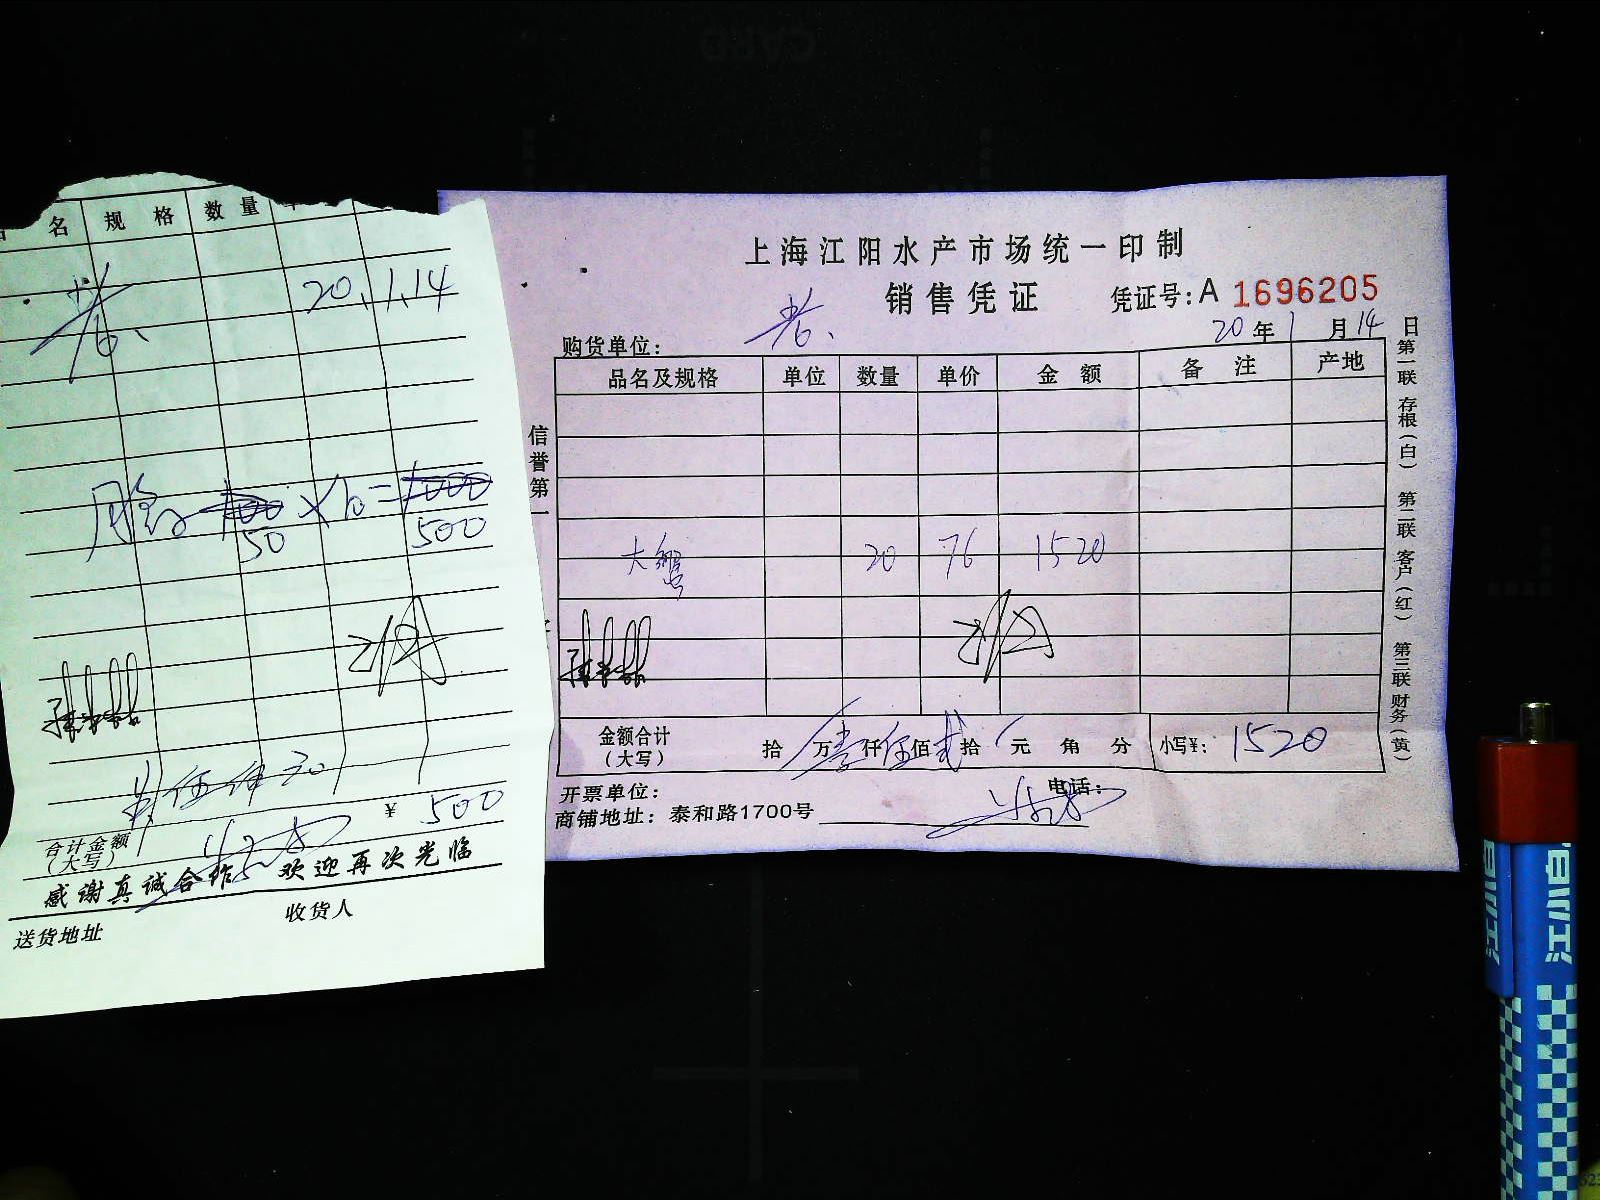 名 规格 数量
20.1.14
100 × 10 = 1000
50 500
¥ 500
合计金额
(大写)
感谢真诚合作 欢迎再次光临
送货地址 收货人
上海江阳水产市场统一印制
销售凭证 凭证号:A 1696205
购货单位: 20年1月14日
品名及规格 单位 数量 单价 金额 备注 产地
大蟹 20 76 1520
金额合计
(大写)
拾万壹仟伍佰贰拾元角分 小写¥: 1520
开票单位: 电话:
商铺地址: 泰和路1700号
信誉第一
第一联 存根(白) 第二联 客户(红) 第三联 财务(黄)
江小白
江小白